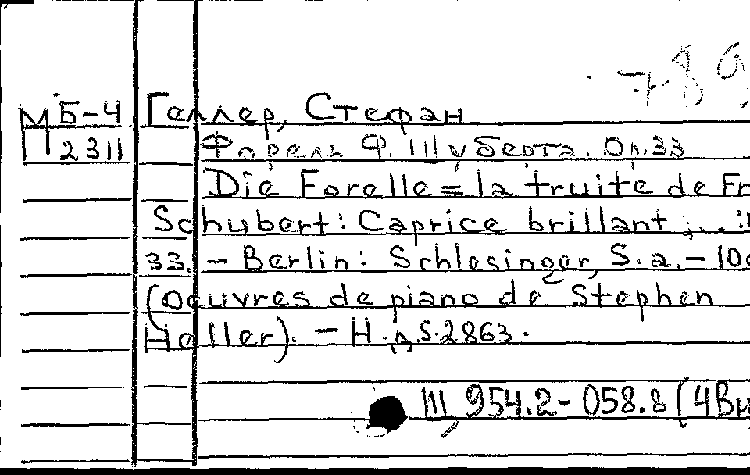 789
М Б-4 Геллер, Стефан
П 2311 Форель Ф. Шуберта. Оп.33
Die Forelle = la truite de Fr
Schubert: Caprice brillant ...:
33. - Berlin: Schlesinger, S. a. - 10
(Oeuvres de piano de Stephen
Heller). - Н. д. S.2863.
Ш 954.2-058.8 (4Вн